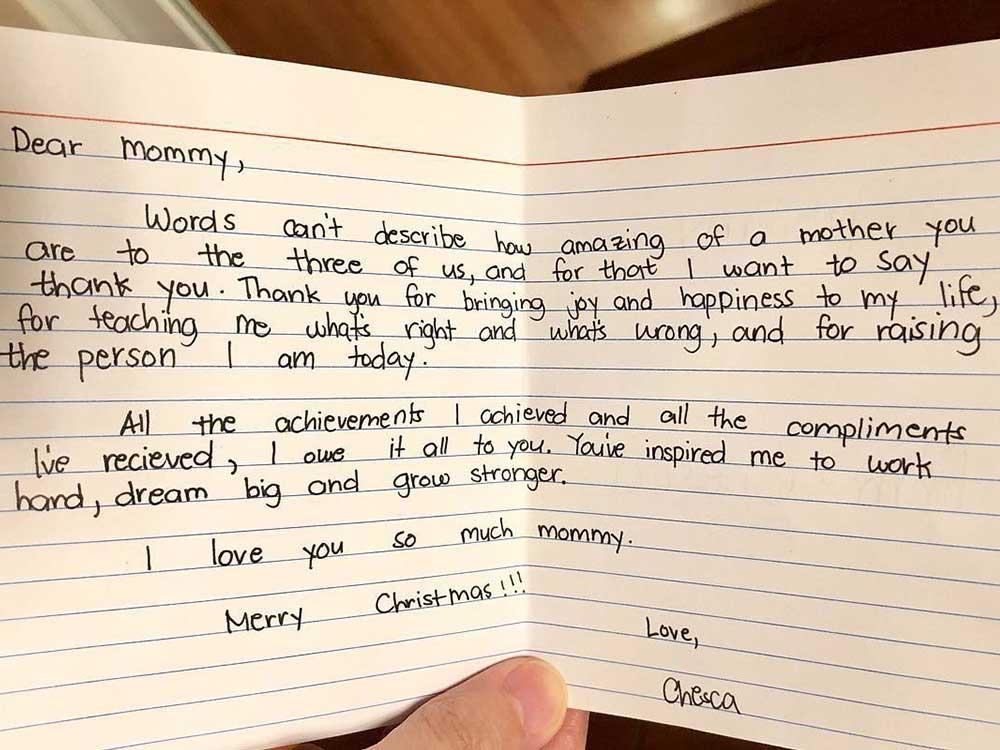 Dear mommy,
Words can't describe how amazing of a mother you
are to the three of us, and for that I want to say
thank you. Thank you for bringing joy and happiness to my life,
for teaching me what's right and what's wrong, and for raising
the person I am today.
All the achievements I achieved and all the compliments
I've recieved, I owe it all to you. You've inspired me to work
hard, dream big and grow stronger.
I love you so much mommy.
Merry Christmas!!!
Love,
Chesca